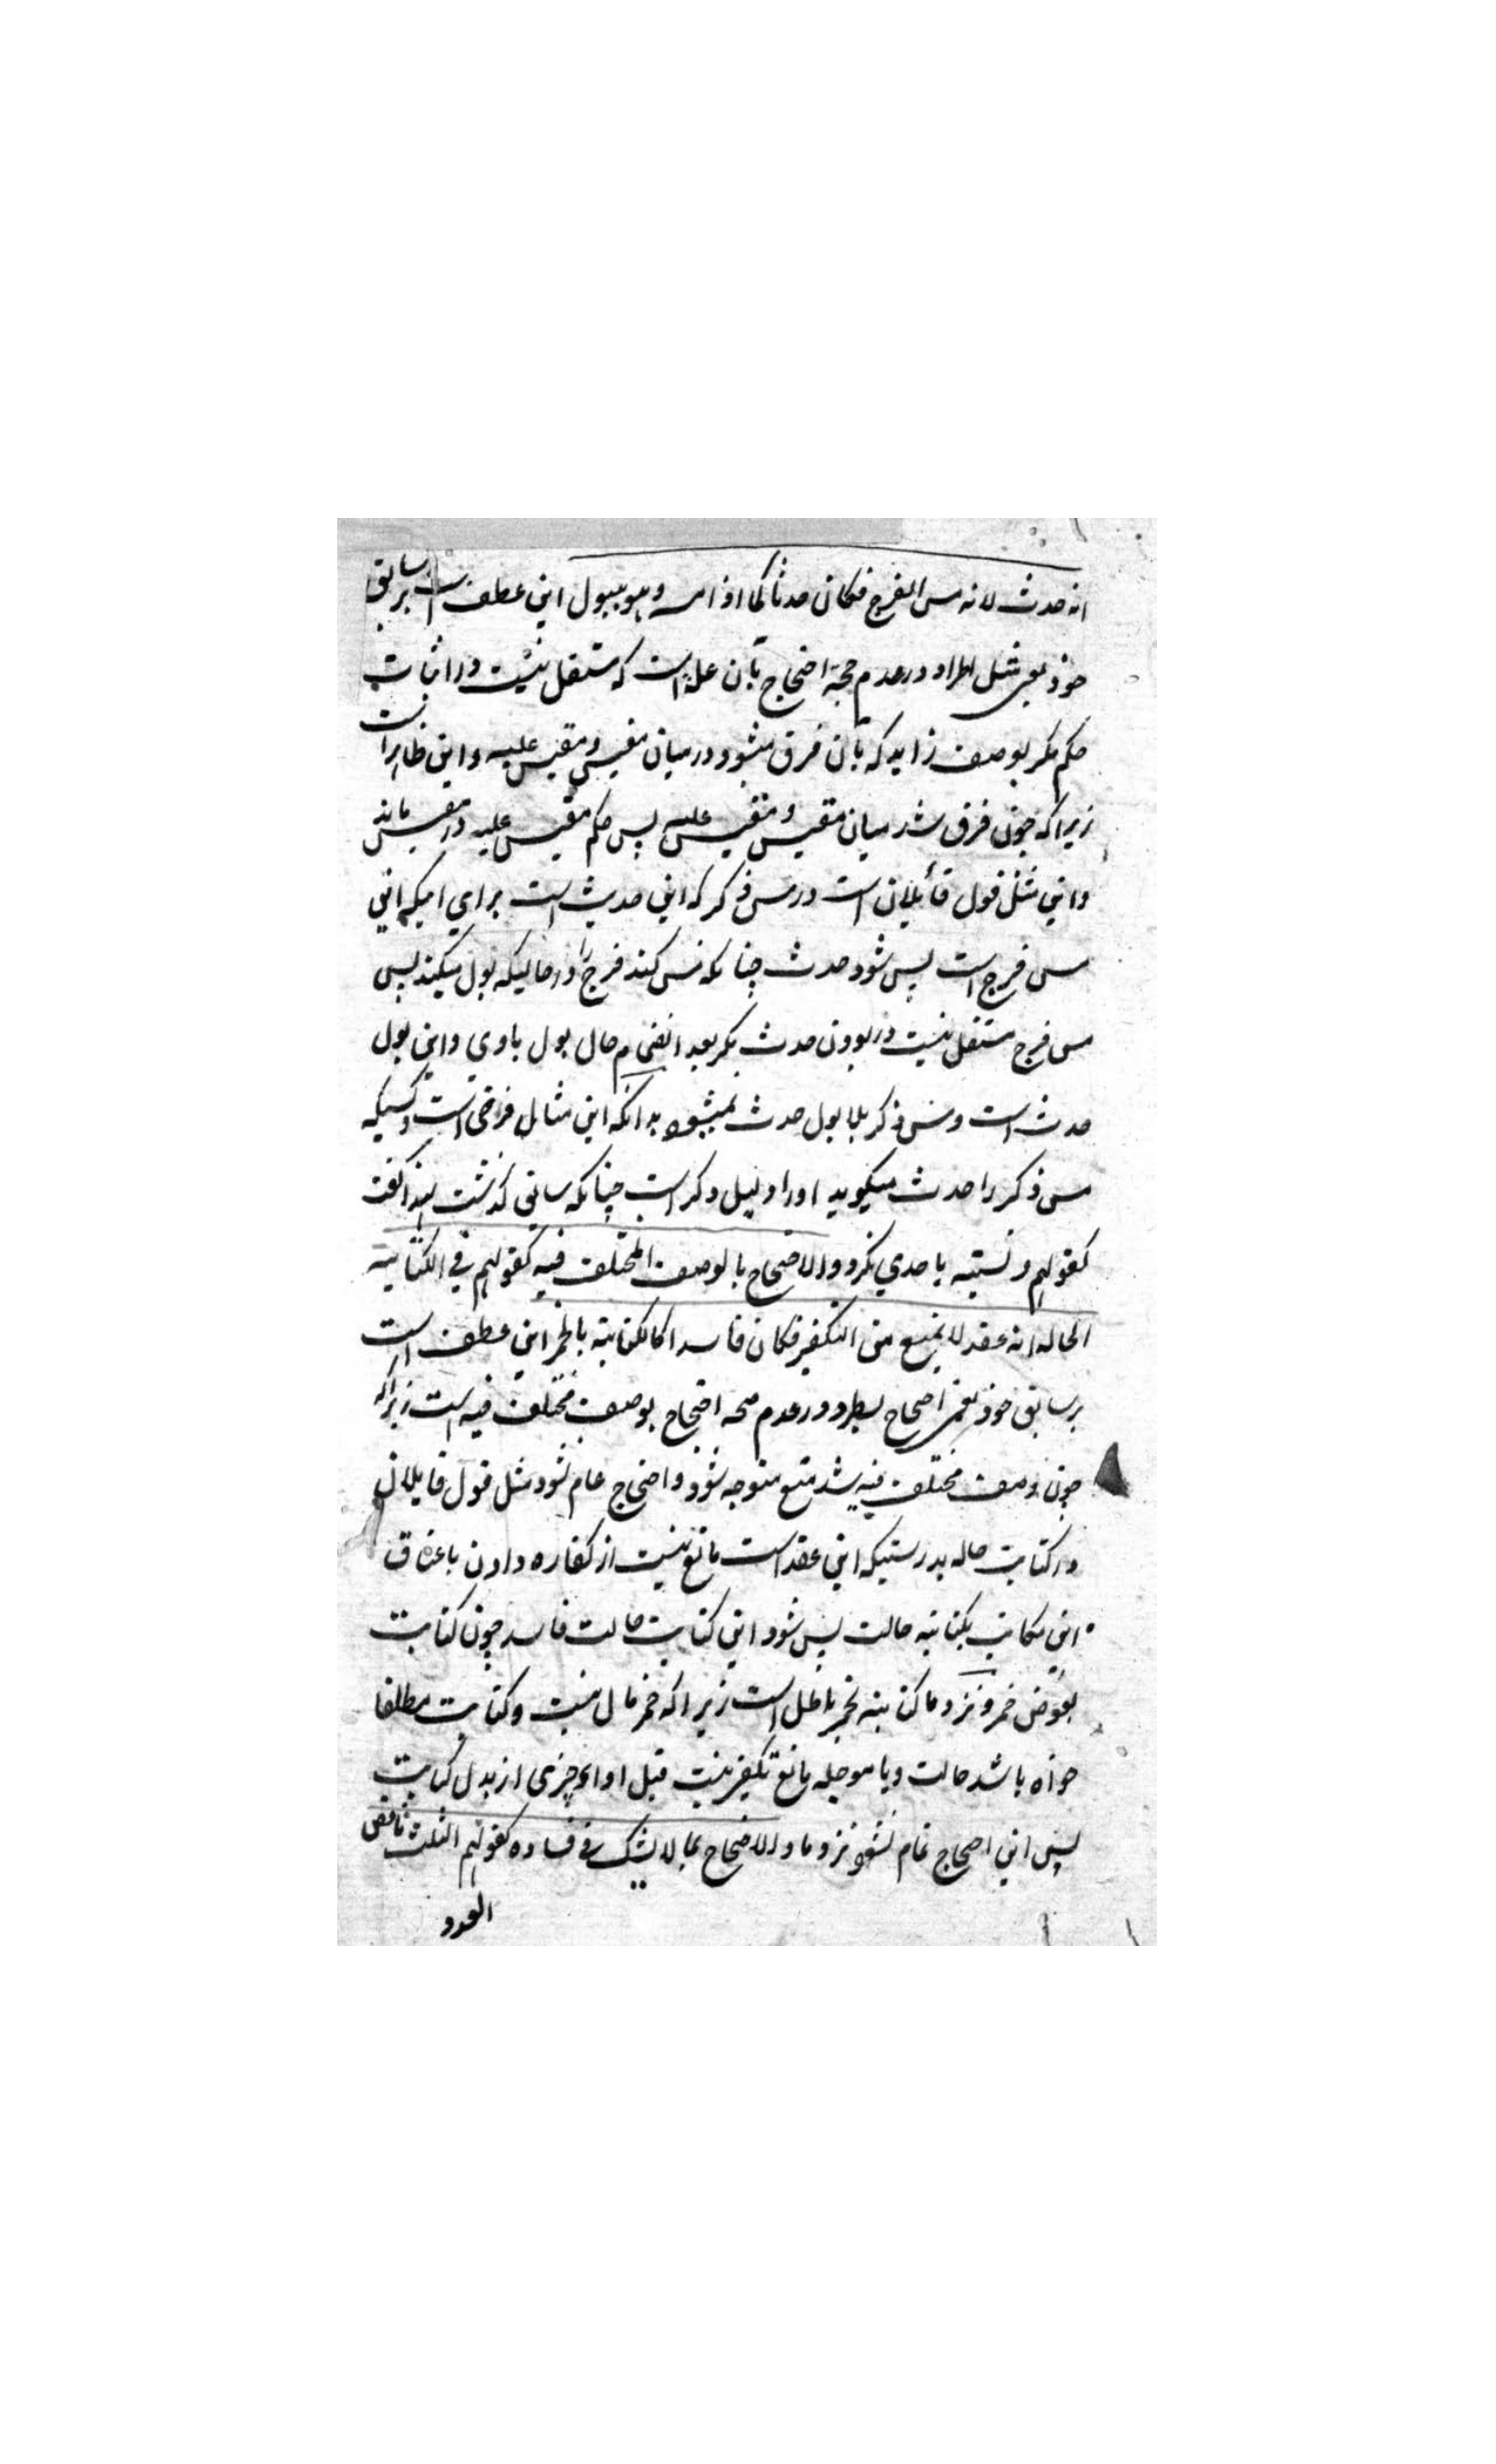 انه حدث لانه مس الفرج فكان حدثا كما اذا مسه وهو يبول اين عطف است بر سابق
خود يعنى مثل اطراد در عدم حجة احتجاج بآن علة است كه مستقل نيست در اثبات
حكم مگر بوصف زايد كه بآن فرق ميشود درميان مقيس و مقيس عليه و اين ظاهر است
زيراكه چون فرق شد ميان مقيس و مقيس عليه پس حكم مقيس عليه در مقيس نماند
و اين مثل قول قائيلان است در مس ذكر كه اين حدث است براي اينكه اين
مس فرج است پس شود حدث چنانكه مس كند فرج را در حاليكه بول ميكند پس
مس فرج مستقل نيست در بودن حدث مگر بعد انضمام حال بول باوي و اين بول
حدث است و مس ذكر بلا بول حدث نميشود بدانكه اين مثال فرضى است و كسيكه
مس ذكر را حدث ميگويد او را دليل دگر است چنانكه سابق گذشت لهذا گفت
كقولهم و نسبته باحدي نكرد والاحتجاج بالوصف المختلف فيه كقولهم في الكتابة
الحالة انه عقد لا يمنع من التكفير فكان فاسدا كالكتابة بالخمر اين عطف است
بر سابق خود يعنى احتجاج بطرد در عدم صحه احتجاج بوصف مختلف فيه است زيراكه
چون وصف مختلف فيه شد منع متوجه شود و احتجاج تمام نشود مثل قول قايلان
در كتابت حاله بدرستيكه اين عقد است مانع نيست از كفاره دادن باعتاق
اين مكاتب بكتابة حالت پس شود اين كتابت حالت فاسد چون كتابت
بعوض خمر و نزد ما كتابته بخمر باطل است زيراكه خمر مال نيست و كتابت مطلقا
خواه باشد حالت و يا موجله مانع تكفير نيست قبل اداء چيزى از بدل كتابت
پس اين احتجاج تمام نشود نزد ما والاحتجاج بما لا يشك في فساده كقولهم الثلث ناقص
العدد